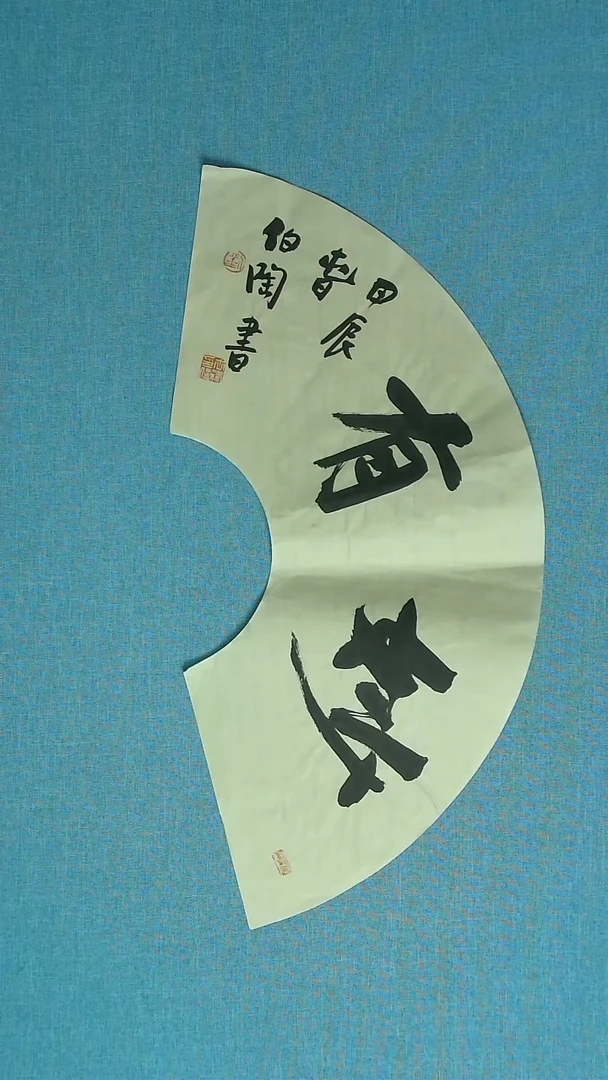 妙有
甲辰
春
伯陶書